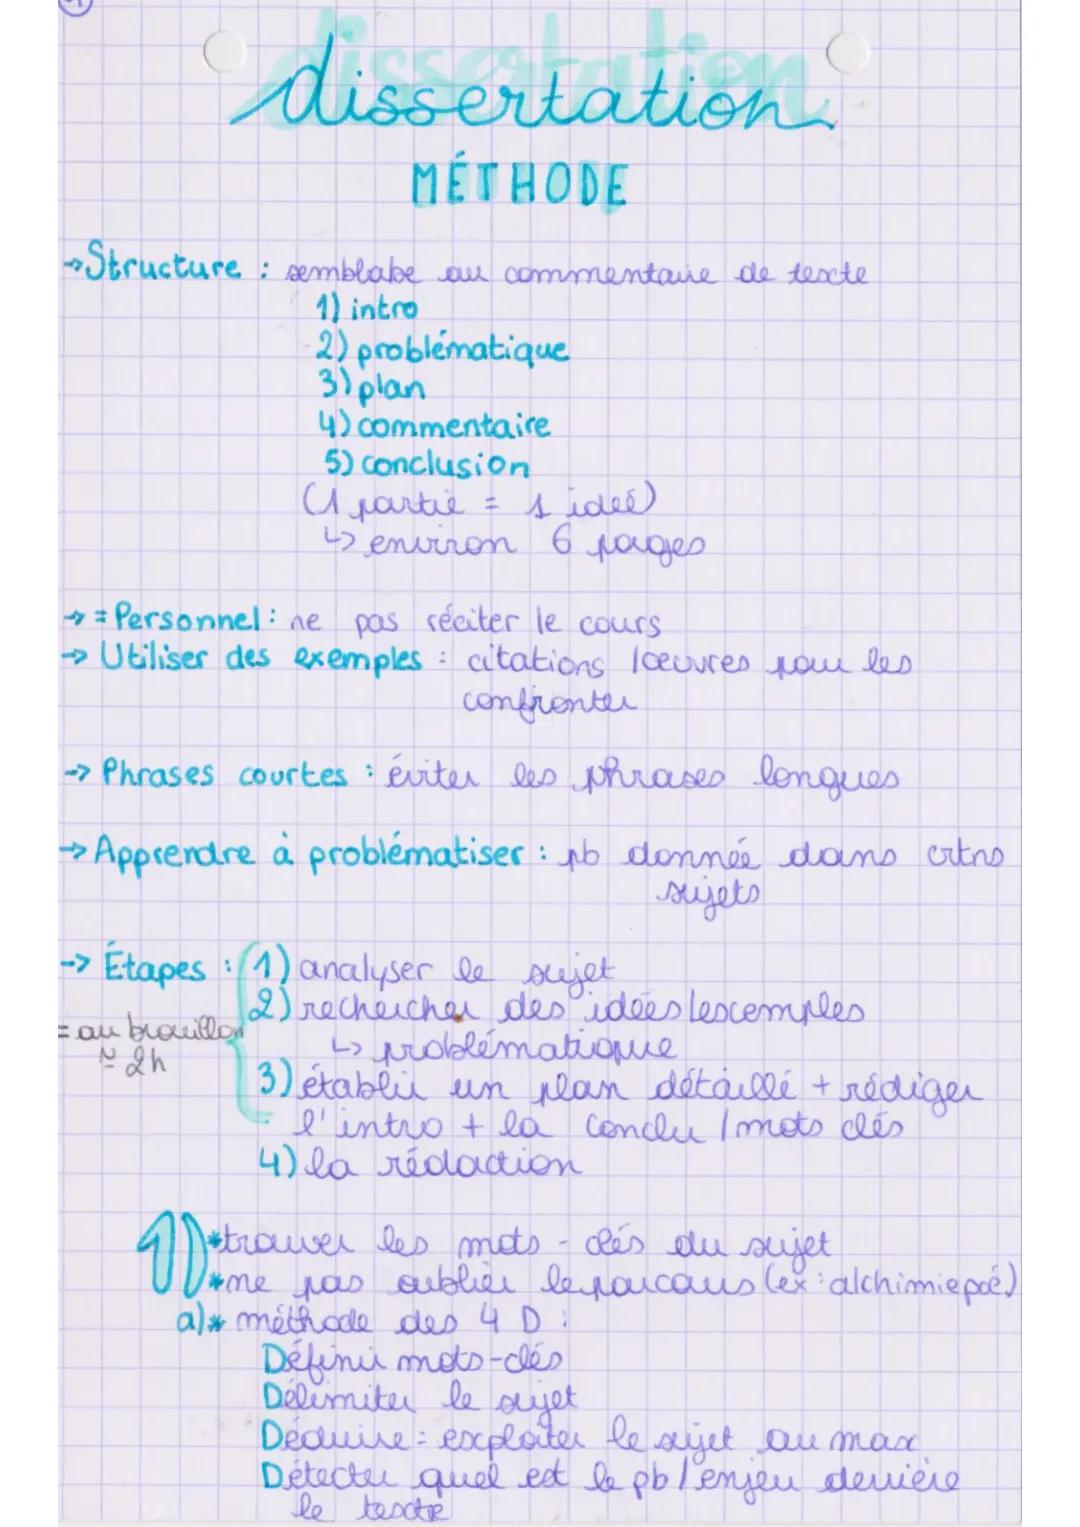 dissertation
MÉTHODE
→Structure : semblabe au commentaire de texte
1) intro
2) problématique
3) plan
4) commentaire
5) conclusion
(1 partie = 1 ideé)
↳ environ 6 pages
→ = Personnel : ne pas réciter le cours
→ Utiliser des exemples : citations / œuvres pour les
confronter
→ Phrases courtes : éviter les phrases longues
→ Apprendre à problématiser : pb donnée dans crtns
sujets
→ Étapes : 1) analyser le sujet
2) rechercher des idées / exemples
= au brouillon
↳ problématique
≃ 2h
3) établir un plan détaillé + rédiger
l'intro + la conclu / mots clés
4) la rédaction
1) *trouver les mots-clés du sujet
*ne pas oublier le parcours (ex : alchimie poé)
a)* méthode des 4 D :
Définir mots-clés
Délimiter le sujet
Déduire : exploiter le sujet au max
Détecter quel est le pb / enjeu derrière
le texte